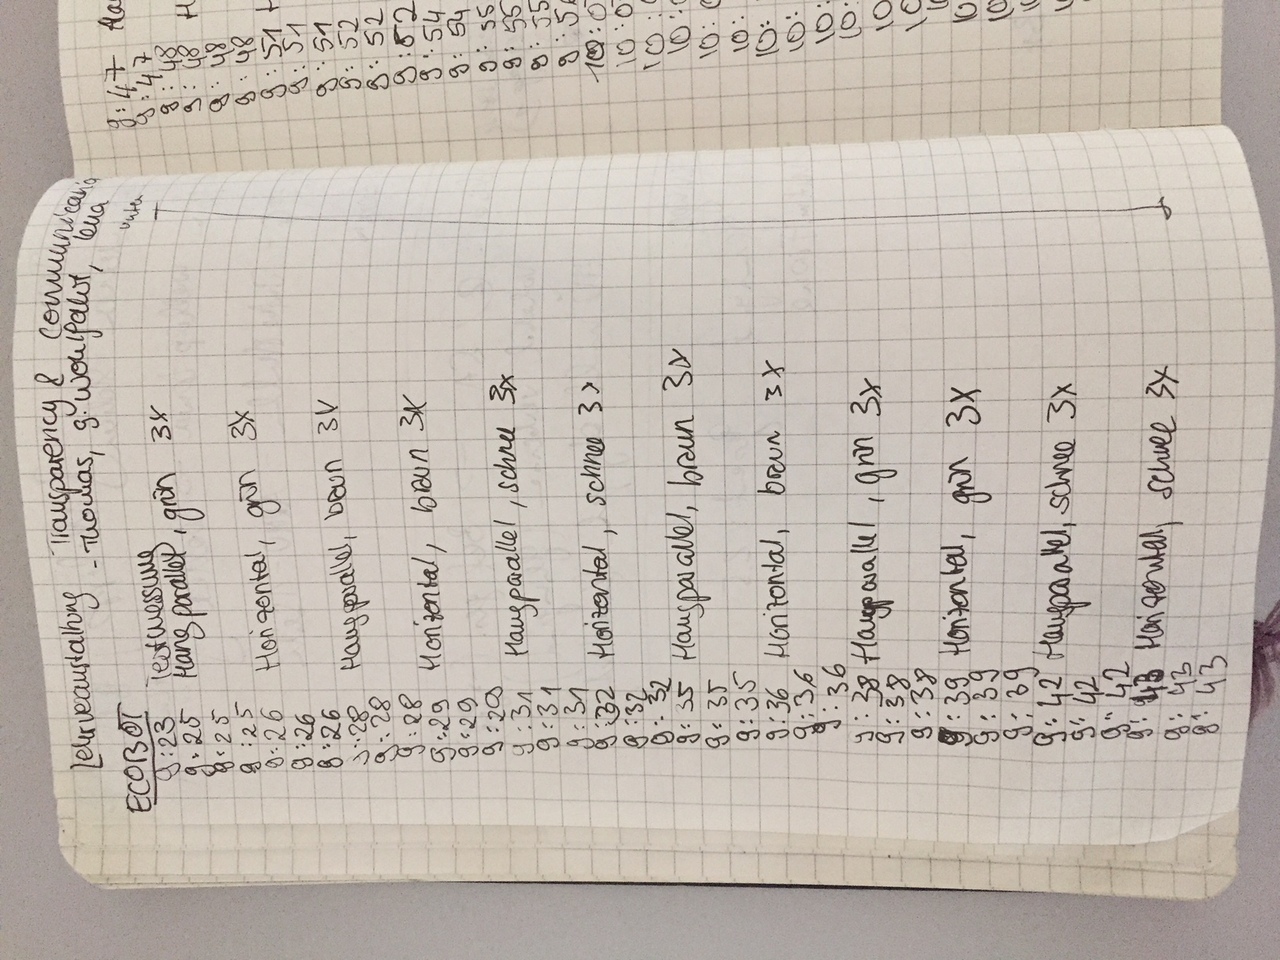 Lehrveranstaltung - Transparency & Communication
- Thomas, g. Wohlfahrt, Lena
ECOBOT
9:23 Testmessung
9:25 Hangparallel, grün 3x
9:25
9:25
9:26 Horizontal, grün 3x
9:26
9:26
9:28 Hangparallel, braun 3x
9:28
9:28
9:29 Horizontal, braun 3x
9:29
9:29
9:31 Hangparallel, schnee 3x
9:31
9:31
9:32 Horizontal, schnee 3x
9:32
9:32
9:35 Hangparallel, braun 3x
9:35
9:35
9:36 Horizontal, braun 3x
9:36
9:36
9:38 Hangparallel, grün 3x
9:38
9:38
9:39 Horizontal, grün 3x
9:39
9:39
9:42 Hangparallel, schnee 3x
9:42
9:42
9:43 Horizontal, schnee 3x
9:43
9:43
9:47
9:47
9:48
9:48
9:48
9:48
9:51
9:51
9:51
9:52
9:52
9:52
9:54
9:54
9:55
9:55
9:55